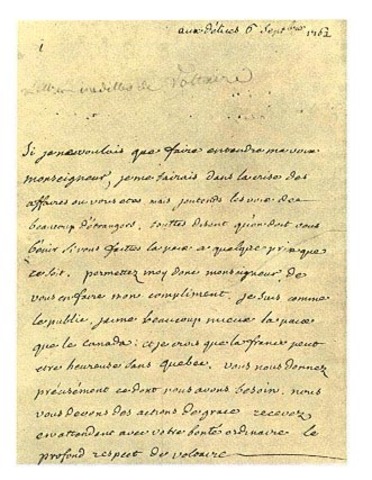 aux délices 6 Septbre 1762
1
Lettres inédittes de Voltaire
Si je ne voulais que faire entendre ma voix
monseigneur, je me tairais dans la crise des
affaires ou vous etes. mais jentends les voix de
beaucoup d'étrangers, touttes disent qu'on doit vous
bénir si vous faittes la paix a quelque prix que
ce soit. permettez moy donc monseigneur de
vous en faire mon compliment. je suis comme
le public, jaime beaucoup mieux la paix
que le canada: et je crois que la france peut
etre heureuse sans Quebec. vous nous donnez
précisément ce dont nous avons besoin. nous
vous devons des actions de grace. recevez
en attendant avec votre bonté ordinaire le
profond respect de voltaire